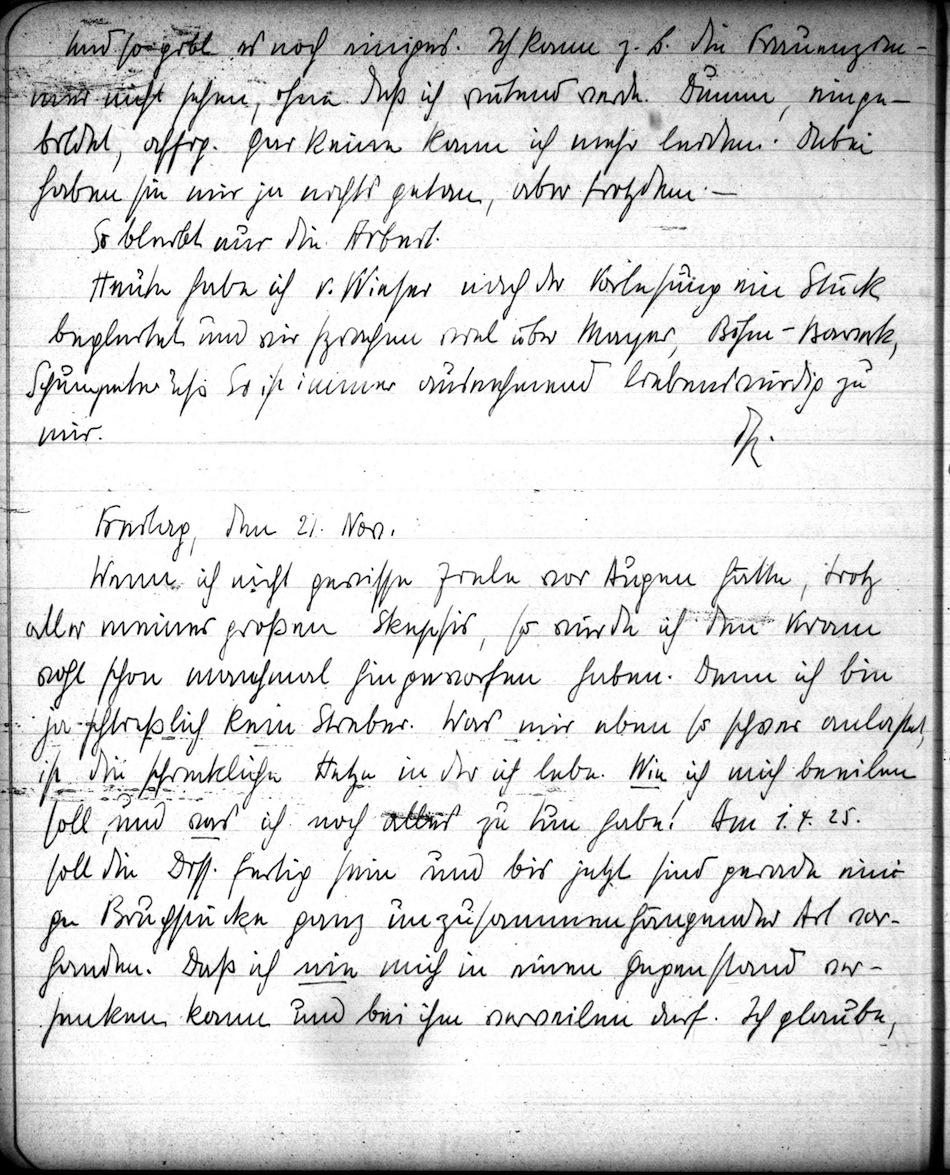 Und so gibt es noch einiges. Ich kann z. B. die Frauenzim-
mer nicht sehen, ohne daß ich wütend werde. Dumm, einge-
bildet, affig. Gar keine kann ich mehr leiden. Dabei
haben sie mir ja nichts getan, aber trotzdem. –
So bleibt nur die Arbeit.
Heute habe ich v. Wieser nach der Vorlesung ein Stück
begleitet und wir sprachen viel über Mayer, Böhm-Bawerk,
Schumpeter usf. Er ist immer ausnehmend liebenswürdig zu
mir.
Freitag, den 21. Nov.
Wenn ich nicht gewisse Ziele vor Augen hätte, trotz
aller meiner großen Skepsis, so würde ich den Kram
wohl schon manchmal hingeworfen haben. Denn ich bin
ja schließlich kein Streber. Was mir eben so schwer anlastet,
ist die schreckliche Hetze in der ich lebe. Wie ich mich beeilen
soll, und was ich noch alles zu tun habe! Am 1. 4. 25.
soll die Diss. fertig sein und bis jetzt sind gerade eini-
ge Bruchstücke ganz unzusammenhängender Art vor-
handen. Daß ich nie mich in einen Gegenstand ver-
senken kann und bei ihm verweilen darf. Ich glaube,